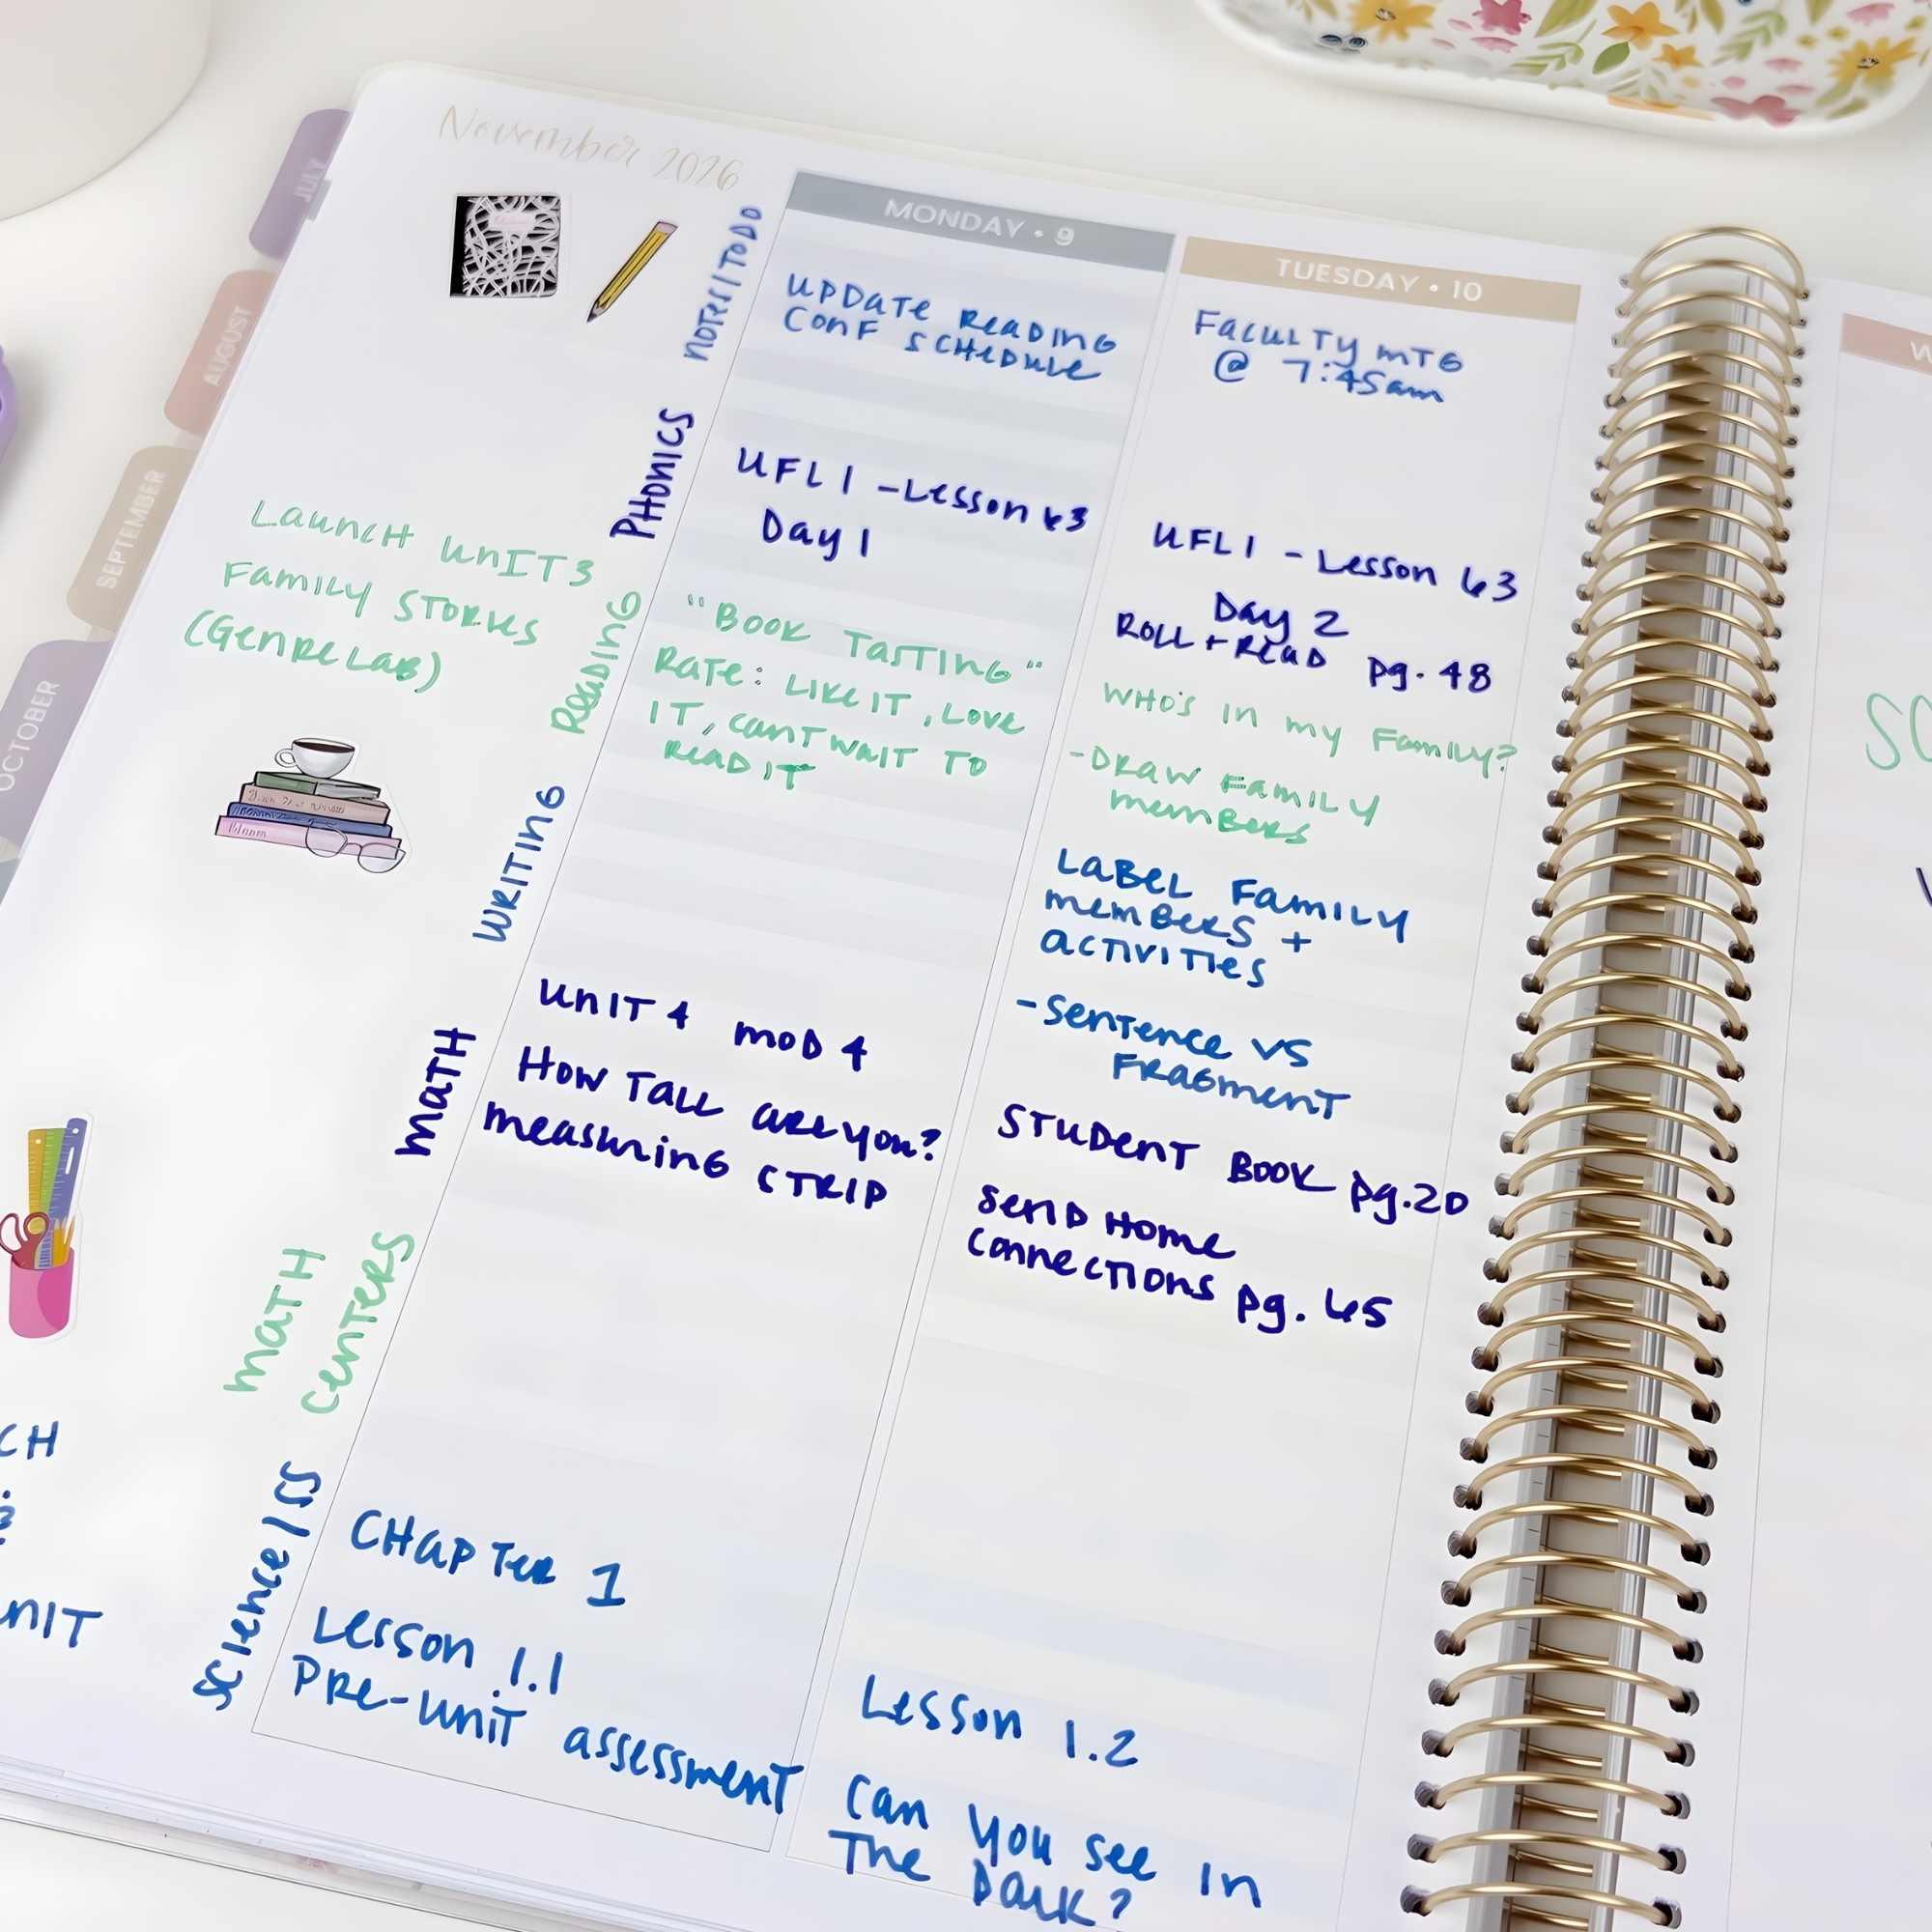 November 2026
JULY
AUGUST
SEPTEMBER
OCTOBER
Launch Unit 3
Family Stories
(Genre Lab)
Bloom
CH
nIT
Notes/To Do
Phonics
Reading
Writing
Math
Math
Centers
Science/SS
MONDAY • 9
Update Reading
Conf Schedule
UFLI - Lesson 63
Day 1
"Book Tasting"
Rate: Like it, Love
it, cant wait to
read it
Unit 4 Mod 4
How Tall are you?
measuring strip
Chapter 1
Lesson 1.1
Pre-Unit assessment
TUESDAY • 10
Faculty mTG
@ 7:45am
UFLI - Lesson 63
Day 2
Roll + Read pg. 48
Who's in my Family?
-Draw Family
members
Label Family
members +
activities
-Sentence vs
Fragment
Student Book pg. 20
Send Home
Connections pg. 45
Lesson 1.2
Can you see in
The Dark?
W
SC